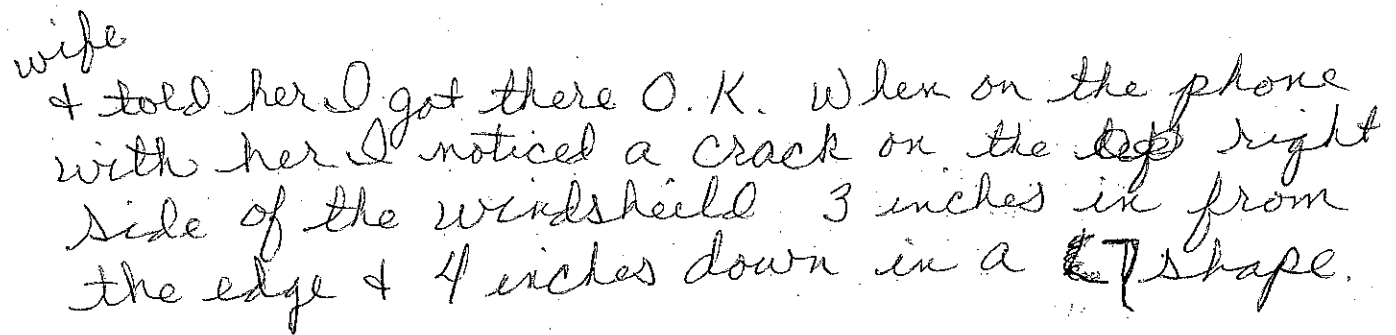 wife
& told her I got there O.K. When on the phone
with her I noticed a crack on the top right
side of the windsheild 3 inches in from
the edge & 4 inches down in a 7 shape.